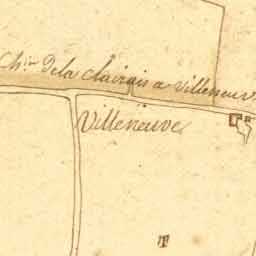 Ch.in de la Clairais a Villeneuv
Villeneuve